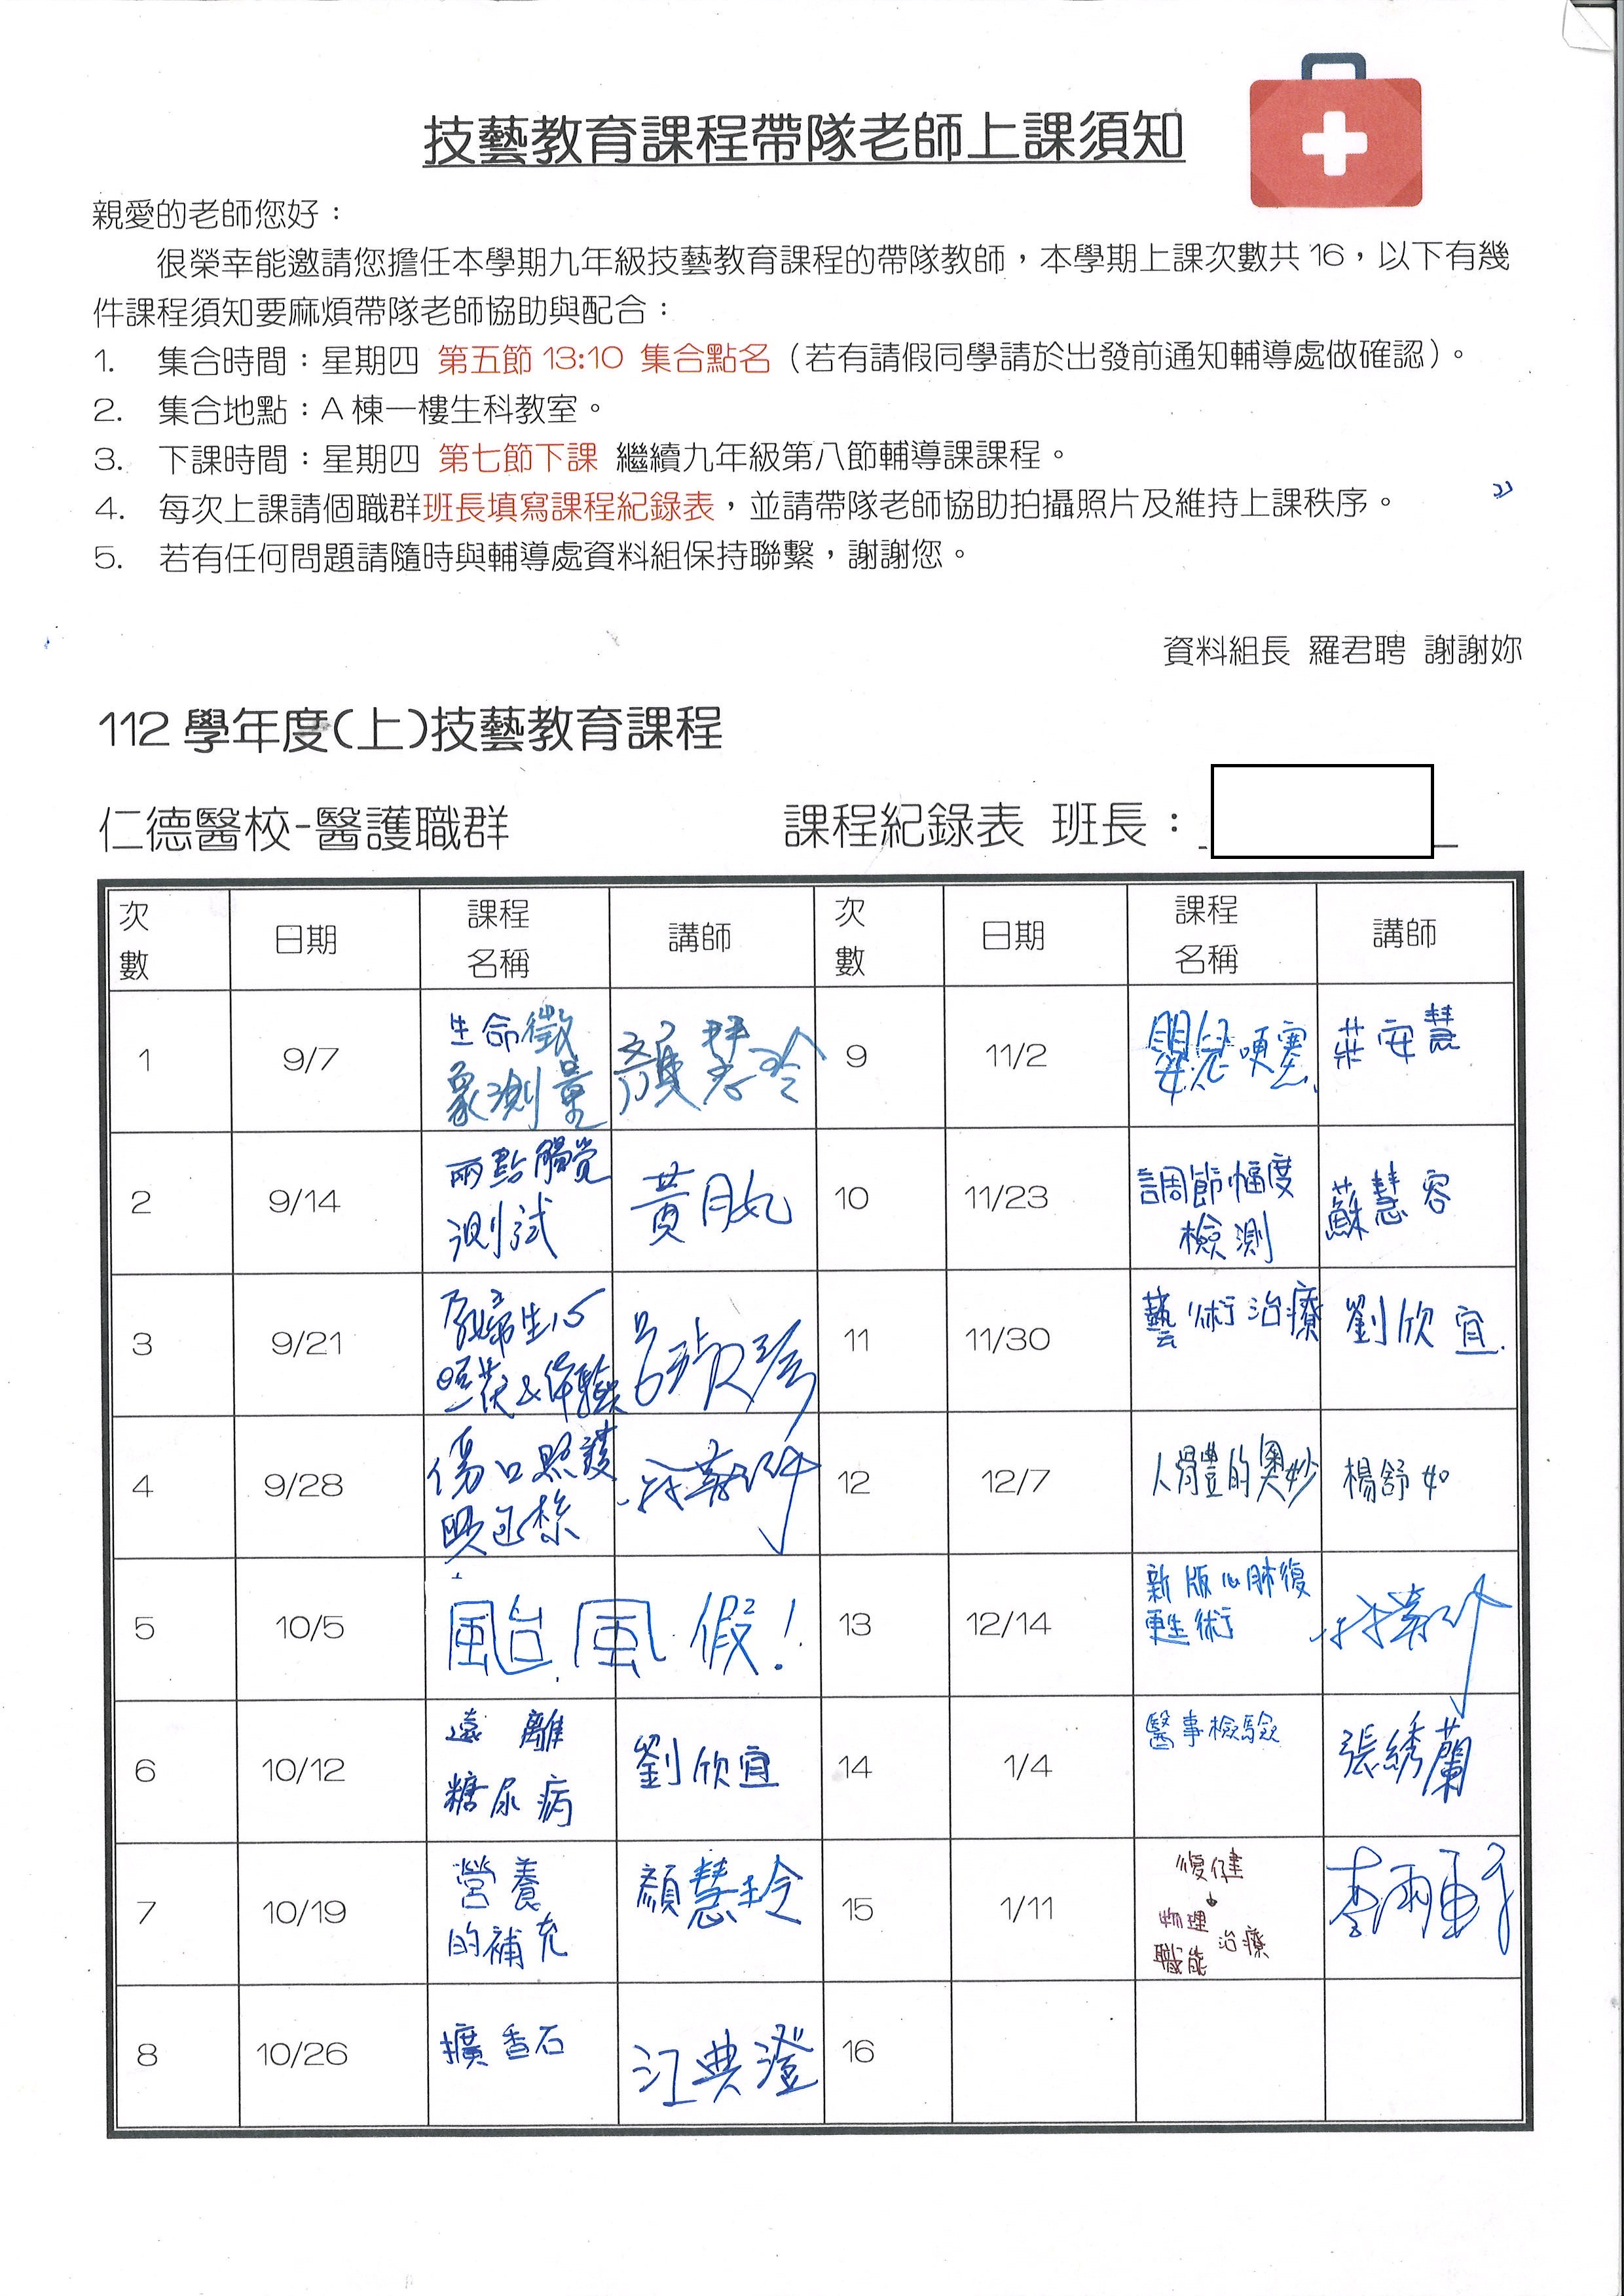 技藝教育課程帶隊老師上課須知
親愛的老師您好：
很榮幸能邀請您擔任本學期九年級技藝教育課程的帶隊教師，本學期上課次數共16，以下有幾
件課程須知要麻煩帶隊老師協助與配合：
1. 集合時間：星期四 第五節 13:10 集合點名（若有請假同學請於出發前通知輔導處做確認）。
2. 集合地點：A 棟一樓生科教室。
3. 下課時間：星期四 第七節下課 繼續九年級第八節輔導課課程。
4. 每次上課請個職群班長填寫課程紀錄表，並請帶隊老師協助拍攝照片及維持上課秩序。
5. 若有任何問題請隨時與輔導處資料組保持聯繫，謝謝您。
資料組長 羅君聘 謝謝妳
112 學年度(上)技藝教育課程
仁德醫校-醫護職群 課程紀錄表 班長：
次數 日期 課程名稱 講師 次數 日期 課程名稱 講師
1 9/7 生命徵象測量 顏慧玲 9 11/2 嬰兒哽塞 莊安慧
2 9/14 兩點觸覺測試 黃 10 11/23 調節幅度檢測 蘇慧容
3 9/21 孕婦生心照護&体驗 11 11/30 藝術治療 劉欣宜
4 9/28 傷口照護與包紮 12 12/7 人體的奧妙 楊舒如
5 10/5 颱風假！ 13 12/14 新版心肺復甦術
6 10/12 遠離糖尿病 劉欣宜 14 1/4 醫事檢驗 張綉蘭
7 10/19 營養的補充 顏慧玲 15 1/11 復健 物理 職能 治療 李
8 10/26 擴香石 江典澄 16